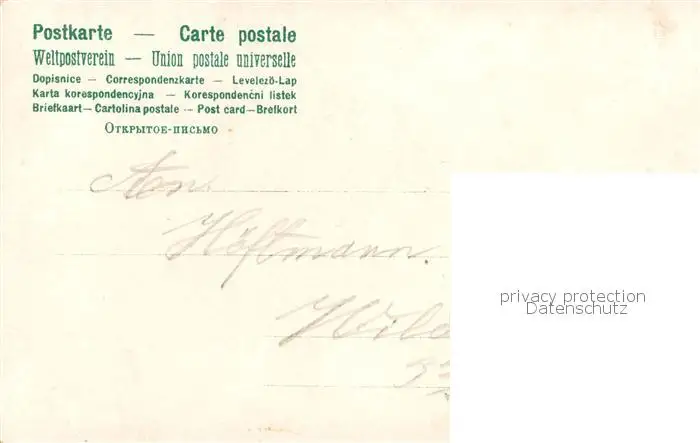 Postkarte — Carte postale
Weltpostverein — Union postale universelle
Dopisnice — Correspondenzkarte — Levelező-Lap
Karta korespondencyjna — Korespondenčni listek
Briefkaart — Cartolina postale — Post card — Brefkort
Открытое-письмо
Höftmann.
privacy protection
Datenschutz